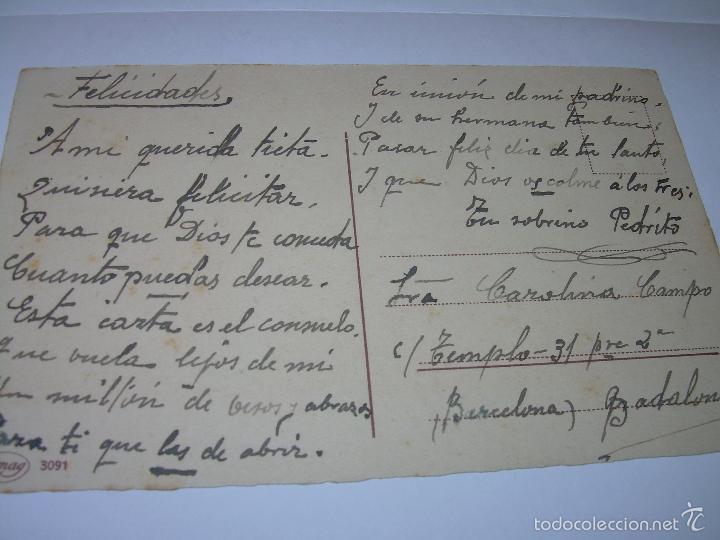 - Felicidades,
A mi querida tieta.
Quisiera felicitar.
Para que Dios te conceda
Cuanto puedas desear.
Esta carta es el consuelo.
Que vuela lejos de mi
Un millón de besos y abrazos
Para ti que las de abrir.
mag 3091
En unión de mi padrino.
I de su hermana tambien,
Pasar feliz dia de tu santo,
I que Dios os colme á los tres.
Tu sobrino Pedrito
Sra Carolina Campo
c/ Templo - 31 pre 2ª
(Barcelona) Badalon
todocoleccion.net